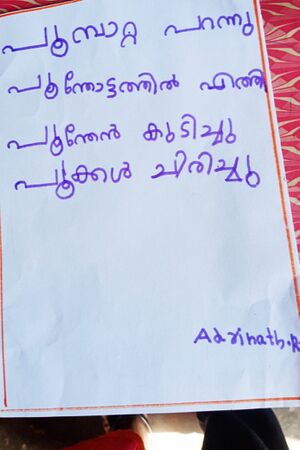 പൂമ്പാറ്റ പറന്നു
പൂന്തോട്ടത്തിൽ എത്തി
പൂന്തേൻ കുടിച്ചു
പൂക്കൾ ചിരിച്ചു
Adrinath.R